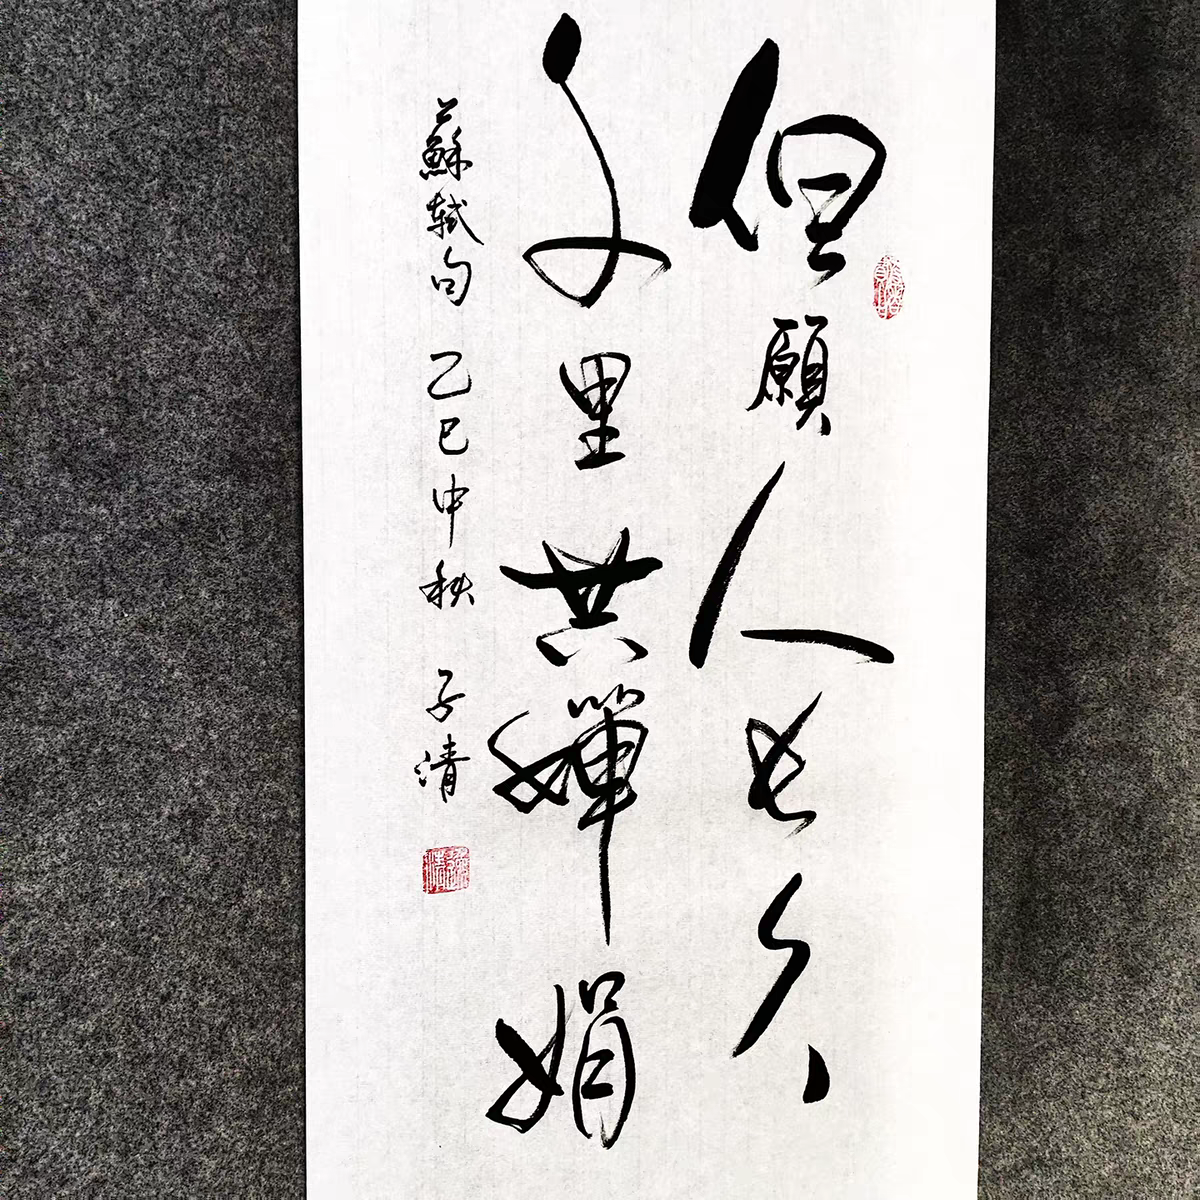 但願人長久
千里共嬋娟
蘇軾句 乙巳中秋 子清